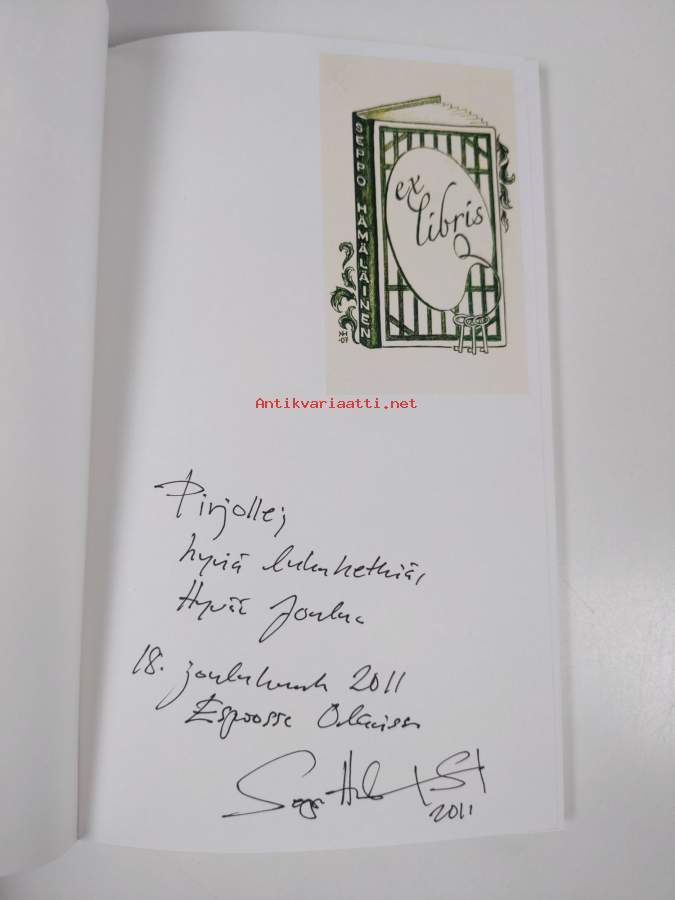 SEPPO HÄMÄLÄINEN
ex
libris
HH
·07
Antikvariaatti.net
Pirjolle;
hyviä lukuhetkiä,
Hyvää Joulua
18. joulukuuta 2011
Espoossa
2011